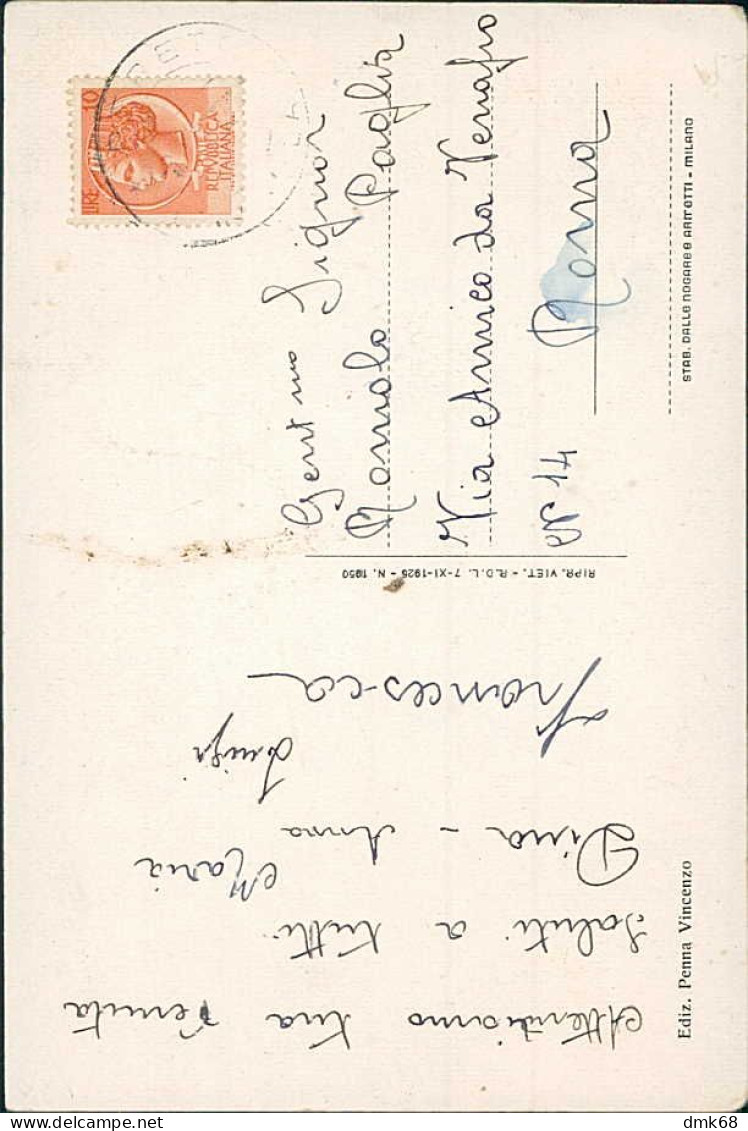 Attendiamo tua venuta
Saluti a tutti
Maria
Dina - Anna
Luigi
Francesca
Ediz. Penna Vincenzo
RIPR. VIET. - R.D.L. 7-XI-1925 - N. 1950
LIRE 10
REPVBBLICA
ITALIANA
Gent mo Signor
Romolo Paglia
Via Amico da Venafro
N° 14 Roma
STAB. DALLE NOGARE E ARMETTI - MILANO
dmk68